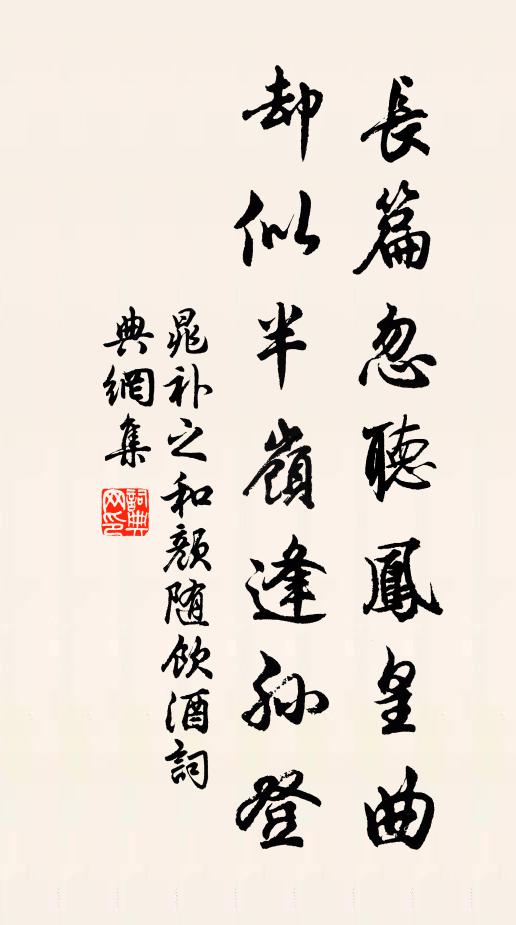 長篇忽聽鳳皇曲
却似半嶺逢孫登
晁补之和顏随飲酒詞
典網集
詞典
网印